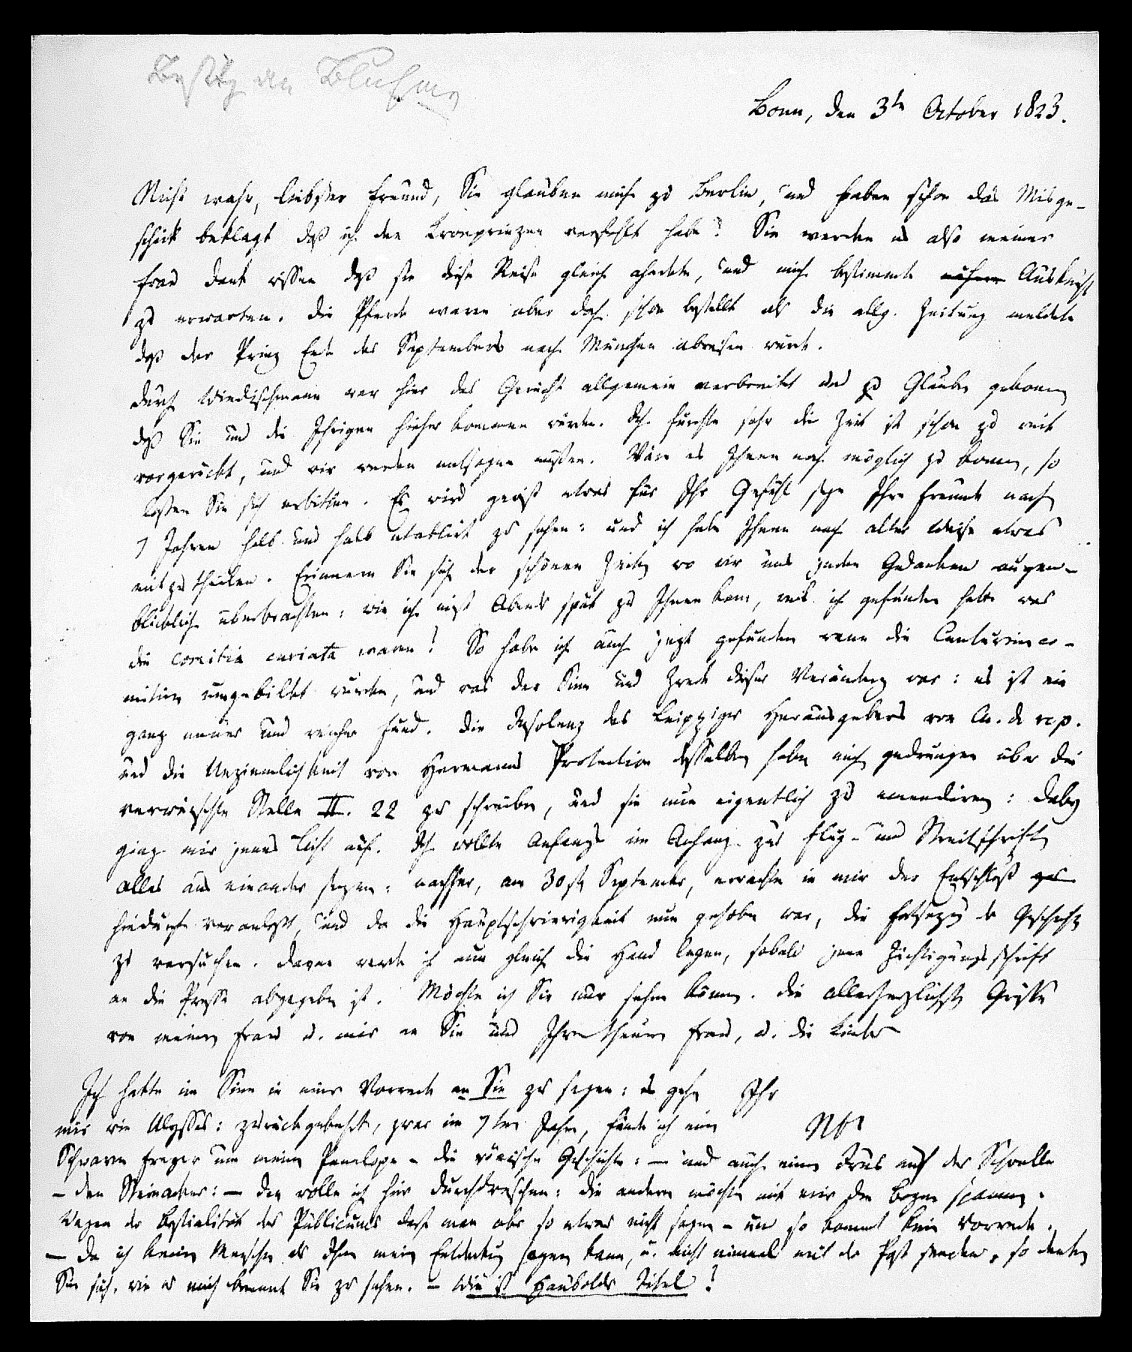 Bonn, den 3ten October 1823.
Nicht wahr, liebster Freund, Sie glauben mich zu Berlin, und haben schon das Misge-
schick beklagt daß ich den Kronprinzen verfehlt habe? Sie werden es also meiner
Frau Dank wissen daß sie diese Reise gleich ahndete, und mich bestimmte Auskunft
zu erwarten. Die Pferde waren aber doch schon bestellt als die allg. Zeitung meldete
daß der Prinz Ende des Septembers nach München abreisen würde.
Durch Windischmann war hier das Gerücht allgemein verbreitet und zu Glauben gekommen
daß Sie und die Ihrigen hieher kommen würden. Ich fürchte sehr die Zeit ist schon zu weit
vorgerückt, und wir werden entsagen müssen. Wäre es Ihnen noch möglich zu kommen, so
lassen Sie sich erbitten. Es wird gewiß etwas für Ihr Gefühl seyn Ihre Freunde nach
7 Jahren halb und halb etablirt zu sehen: und ich habe Ihnen nach alter Weise etwas
mitzutheilen. Erinnern Sie sich der schönen Zeiten wo wir uns jeden Gedanken augen-
blicklich überbrachten: wie ich einst Abends spät zu Ihnen kam, weil ich gefunden hatte was
die comitia curiata waren! So habe ich auch jezt gefunden wenn die Centurienco-
mitien umgebildet wurden, und was der Sinn und Zweck dieser Veränderung war: es ist ein
ganz neuer und reicher Fund. Die Insolenz des Leipziger Herausgebers von Cic. de rep.
und die Unziemlichkeit von Hermanns Protection desselben haben mich gedrungen über die
verwünschte Stelle II. 22 zu schreiben, und sie nun eigentlich zu emendiren: dabey
ging mir jenes Licht auf. Ich wollte Anfangs im Anhang zur Flug- und Streitschrift
alles aus einander sezen: nachher, am 30sten September, erwachte in mir der Entschluß
hiedurch veranlaßt, und da die Hauptschwierigkeit nun gehoben war, die Fortsezung der Geschichte
zu versuchen. Daran werde ich nun gleich die Hand legen, sobald jene Züchtigungsschrift
an die Presse abgegeben ist. Möchte ich Sie nur sehen können. Die allerherzlichsten Grüße
von meiner Frau u. mir an Sie und Ihre theure Frau, u. die Kinder
Ihr
Nbr
Ich hatte im Sinn in einer Vorrede an Sie zu sagen: es gehe
mir wie Ulysses: zurückgekehrt, zwar im 7ten Jahr, fände ich einen
Schwarm Freyer um meine Penelope – die römische Geschichte: – und auch einen Irus auf der Schwelle
– den Steinacker: – den wolle ich hier durchdreschen: die andern möchten mit mir den Bogen spannen.
Wegen der Bestialität des Publicums darf man aber so etwas nicht sagen – und so kommt keine Vorrede.
– Da ich keinem Menschen als Ihnen meine Entdeckung sagen kann, u. nicht einmal mit der Post senden, so denken
Sie sich, wie es mich brennt Sie zu sehen. – Wie ist Haubolds Titel?